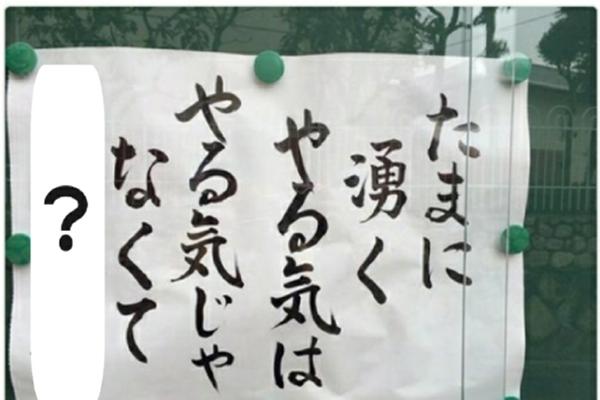 たまに
湧く
やる気は
やる気じゃ
なくて
?